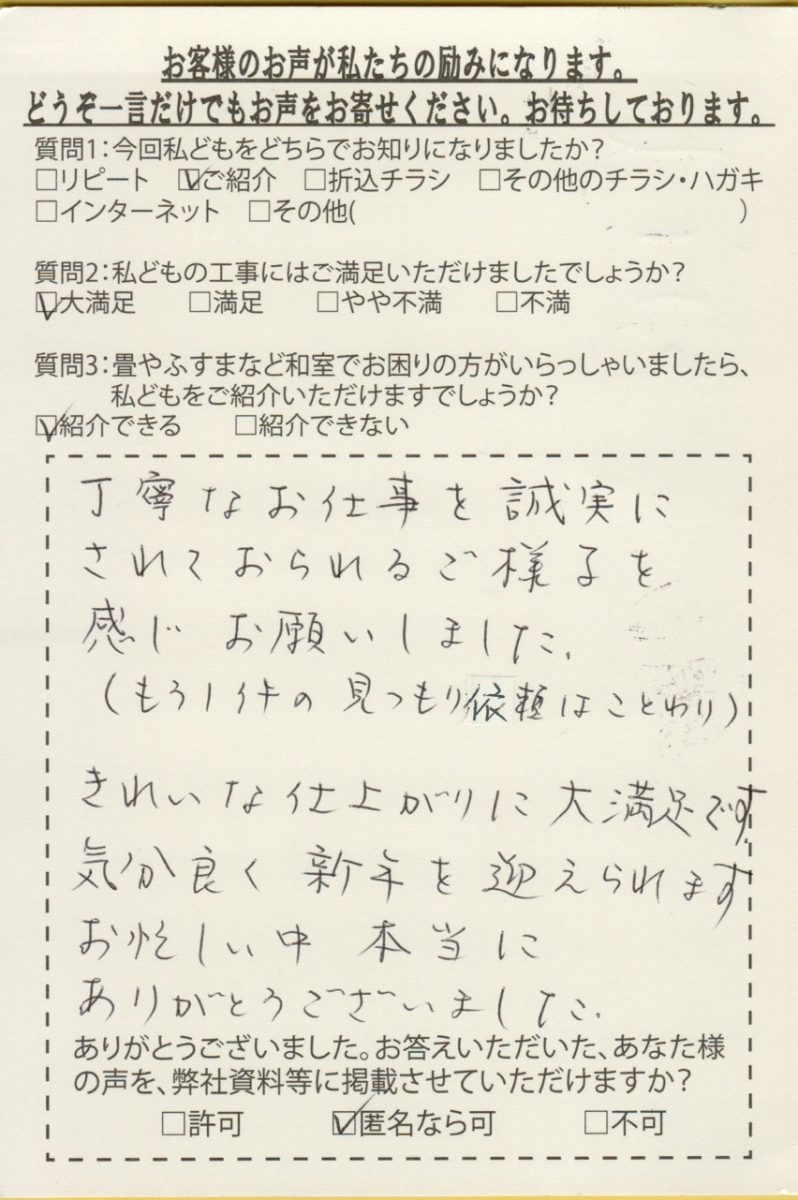 お客様のお声が私たちの励みになります。
どうぞ一言だけでもお声をお寄せください。お待ちしております。
質問1：今回私どもをどちらでお知りになりましたか？
□リピート ☑ご紹介 □折込チラシ □その他のチラシ・ハガキ
□インターネット □その他( )
質問2：私どもの工事にはご満足いただけましたでしょうか？
☑大満足 □満足 □やや不満 □不満
質問3：畳やふすまなど和室でお困りの方がいらっしゃいましたら、
私どもをご紹介いただけますでしょうか？
☑紹介できる □紹介できない
丁寧なお仕事を誠実に
されておられるご様子を
感じ お願いしました。
(もう1件の見つもり依頼はことわり)
きれいな仕上がりに大満足です。
気分良く新年を迎えられます
お忙しい中 本当に
ありがとうございました。
ありがとうございました。お答えいただいた、あなた様
の声を、弊社資料等に掲載させていただけますか？
□許可 ☑匿名なら可 □不可